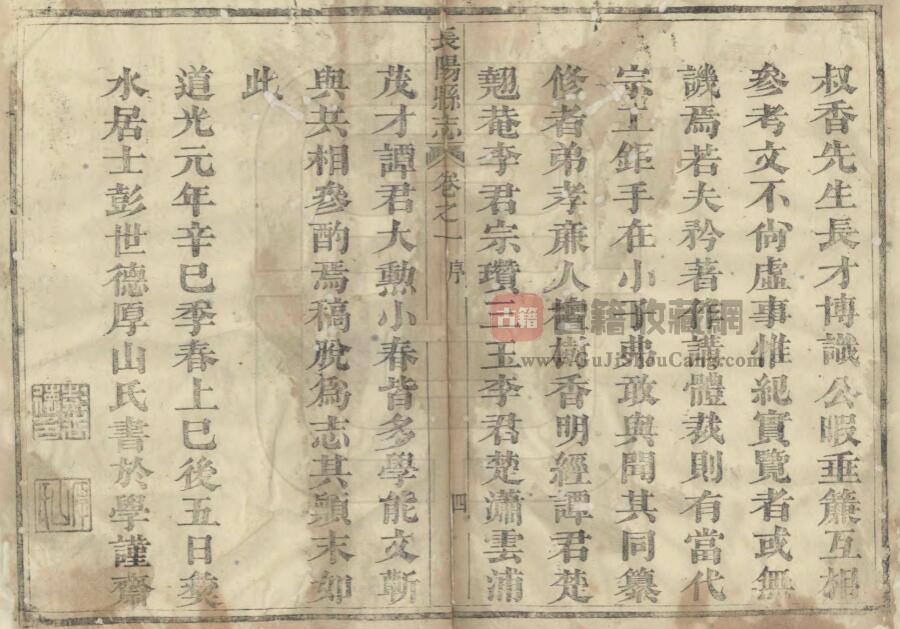 叔香先生長才博識公暇垂簾互相
參考文不尙虛事惟紀實覽者或無
譏焉若夫矜著作講體裁則有當代
宗工鉅手在小子弗敢與聞其同纂
修者弟孝亷人樹香明經譚君楚
翹菴李君宗瓚玉李君楚瀟雲浦
長陽縣志
卷之一
序
四
茂才譚君大勲小春皆多學能文斬
與共相參酌焉稿脫爲志其顚末如
此
道光元年辛巳季春上巳後五日葵
水居士彭世德厚山氏書於學謹齋
古籍
籍收藏網
www.GuJiShouCang.com